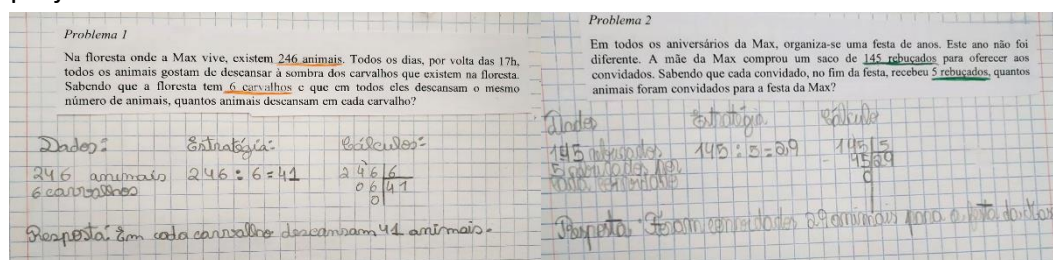 Problema 1
Na floresta onde a Max vive, existem 246 animais. Todos os dias, por volta das 17h,
todos os animais gostam de descansar à sombra dos carvalhos que existem na floresta.
Sabendo que a floresta tem 6 carvalhos e que em todos eles descansam o mesmo
número de animais, quantos animais descansam em cada carvalho?
Dados:
Estratégia:
Cálculos:
246 animais
246 : 6 = 41
246 6
6 carvalhos
06 41
0
Resposta: Em cada carvalho descansam 41 animais.
Problema 2
Em todos os aniversários da Max, organiza-se uma festa de anos. Este ano não foi
diferente. A mãe da Max comprou um saco de 145 rebuçados para oferecer aos
convidados. Sabendo que cada convidado, no fim da festa, recebeu 5 rebuçados, quantos
animais foram convidados para a festa da Max?
Dados
Estratégia
Cálculo
145 rebuçados
145 : 5 = 29
145 5
5 rebuçados por
- 45 29
cada convidado
0
Resposta: Foram convidados 29 animais para a festa da Max